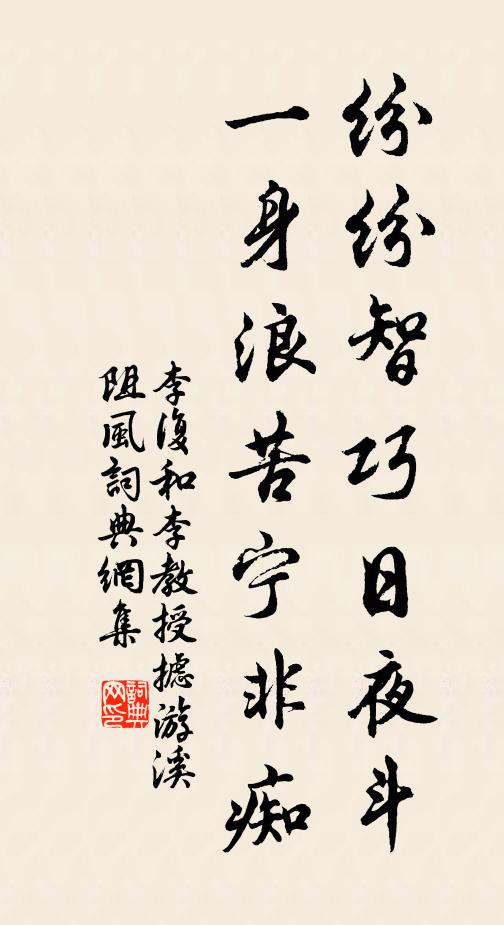 纷纷智巧日夜斗
一身浪苦宁非痴
李復和李教授摅游溪
阻風詞典網集
詞典網印